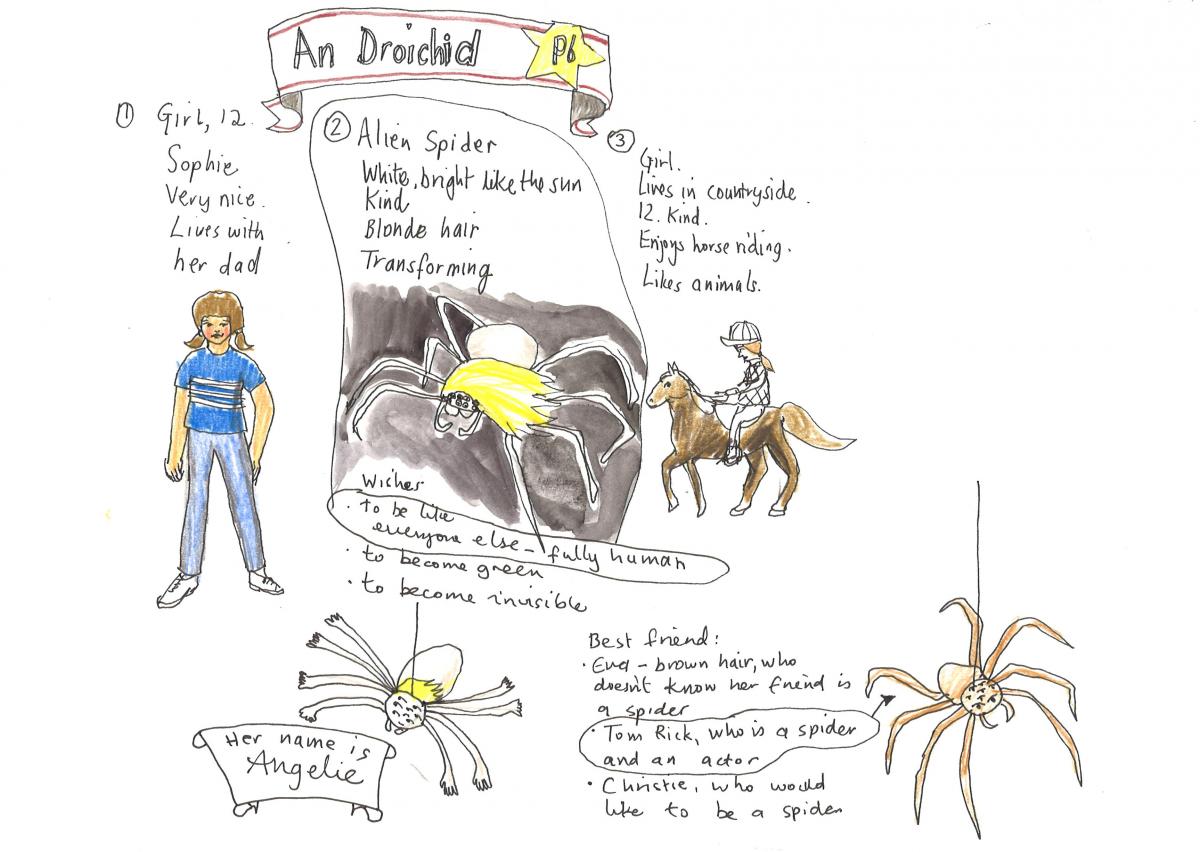 An Droichid
P6
① Girl, 12.
Sophie
Very nice.
Lives with
her dad
② Alien Spider
White, bright like the sun
Kind
Blonde hair
Transforming
③ Girl.
Lives in countryside.
12. Kind.
Enjoys horse riding.
Likes animals.
Wishes
· to be like
everyone else - fully human
· to become green
· to become invisible
Her name is
Angelie
Best friend:
· Eva - brown hair, who
doesn't know her friend is
a spider
· Tom Rick, who is a spider
and an actor
· Christie, who would
like to be a spider